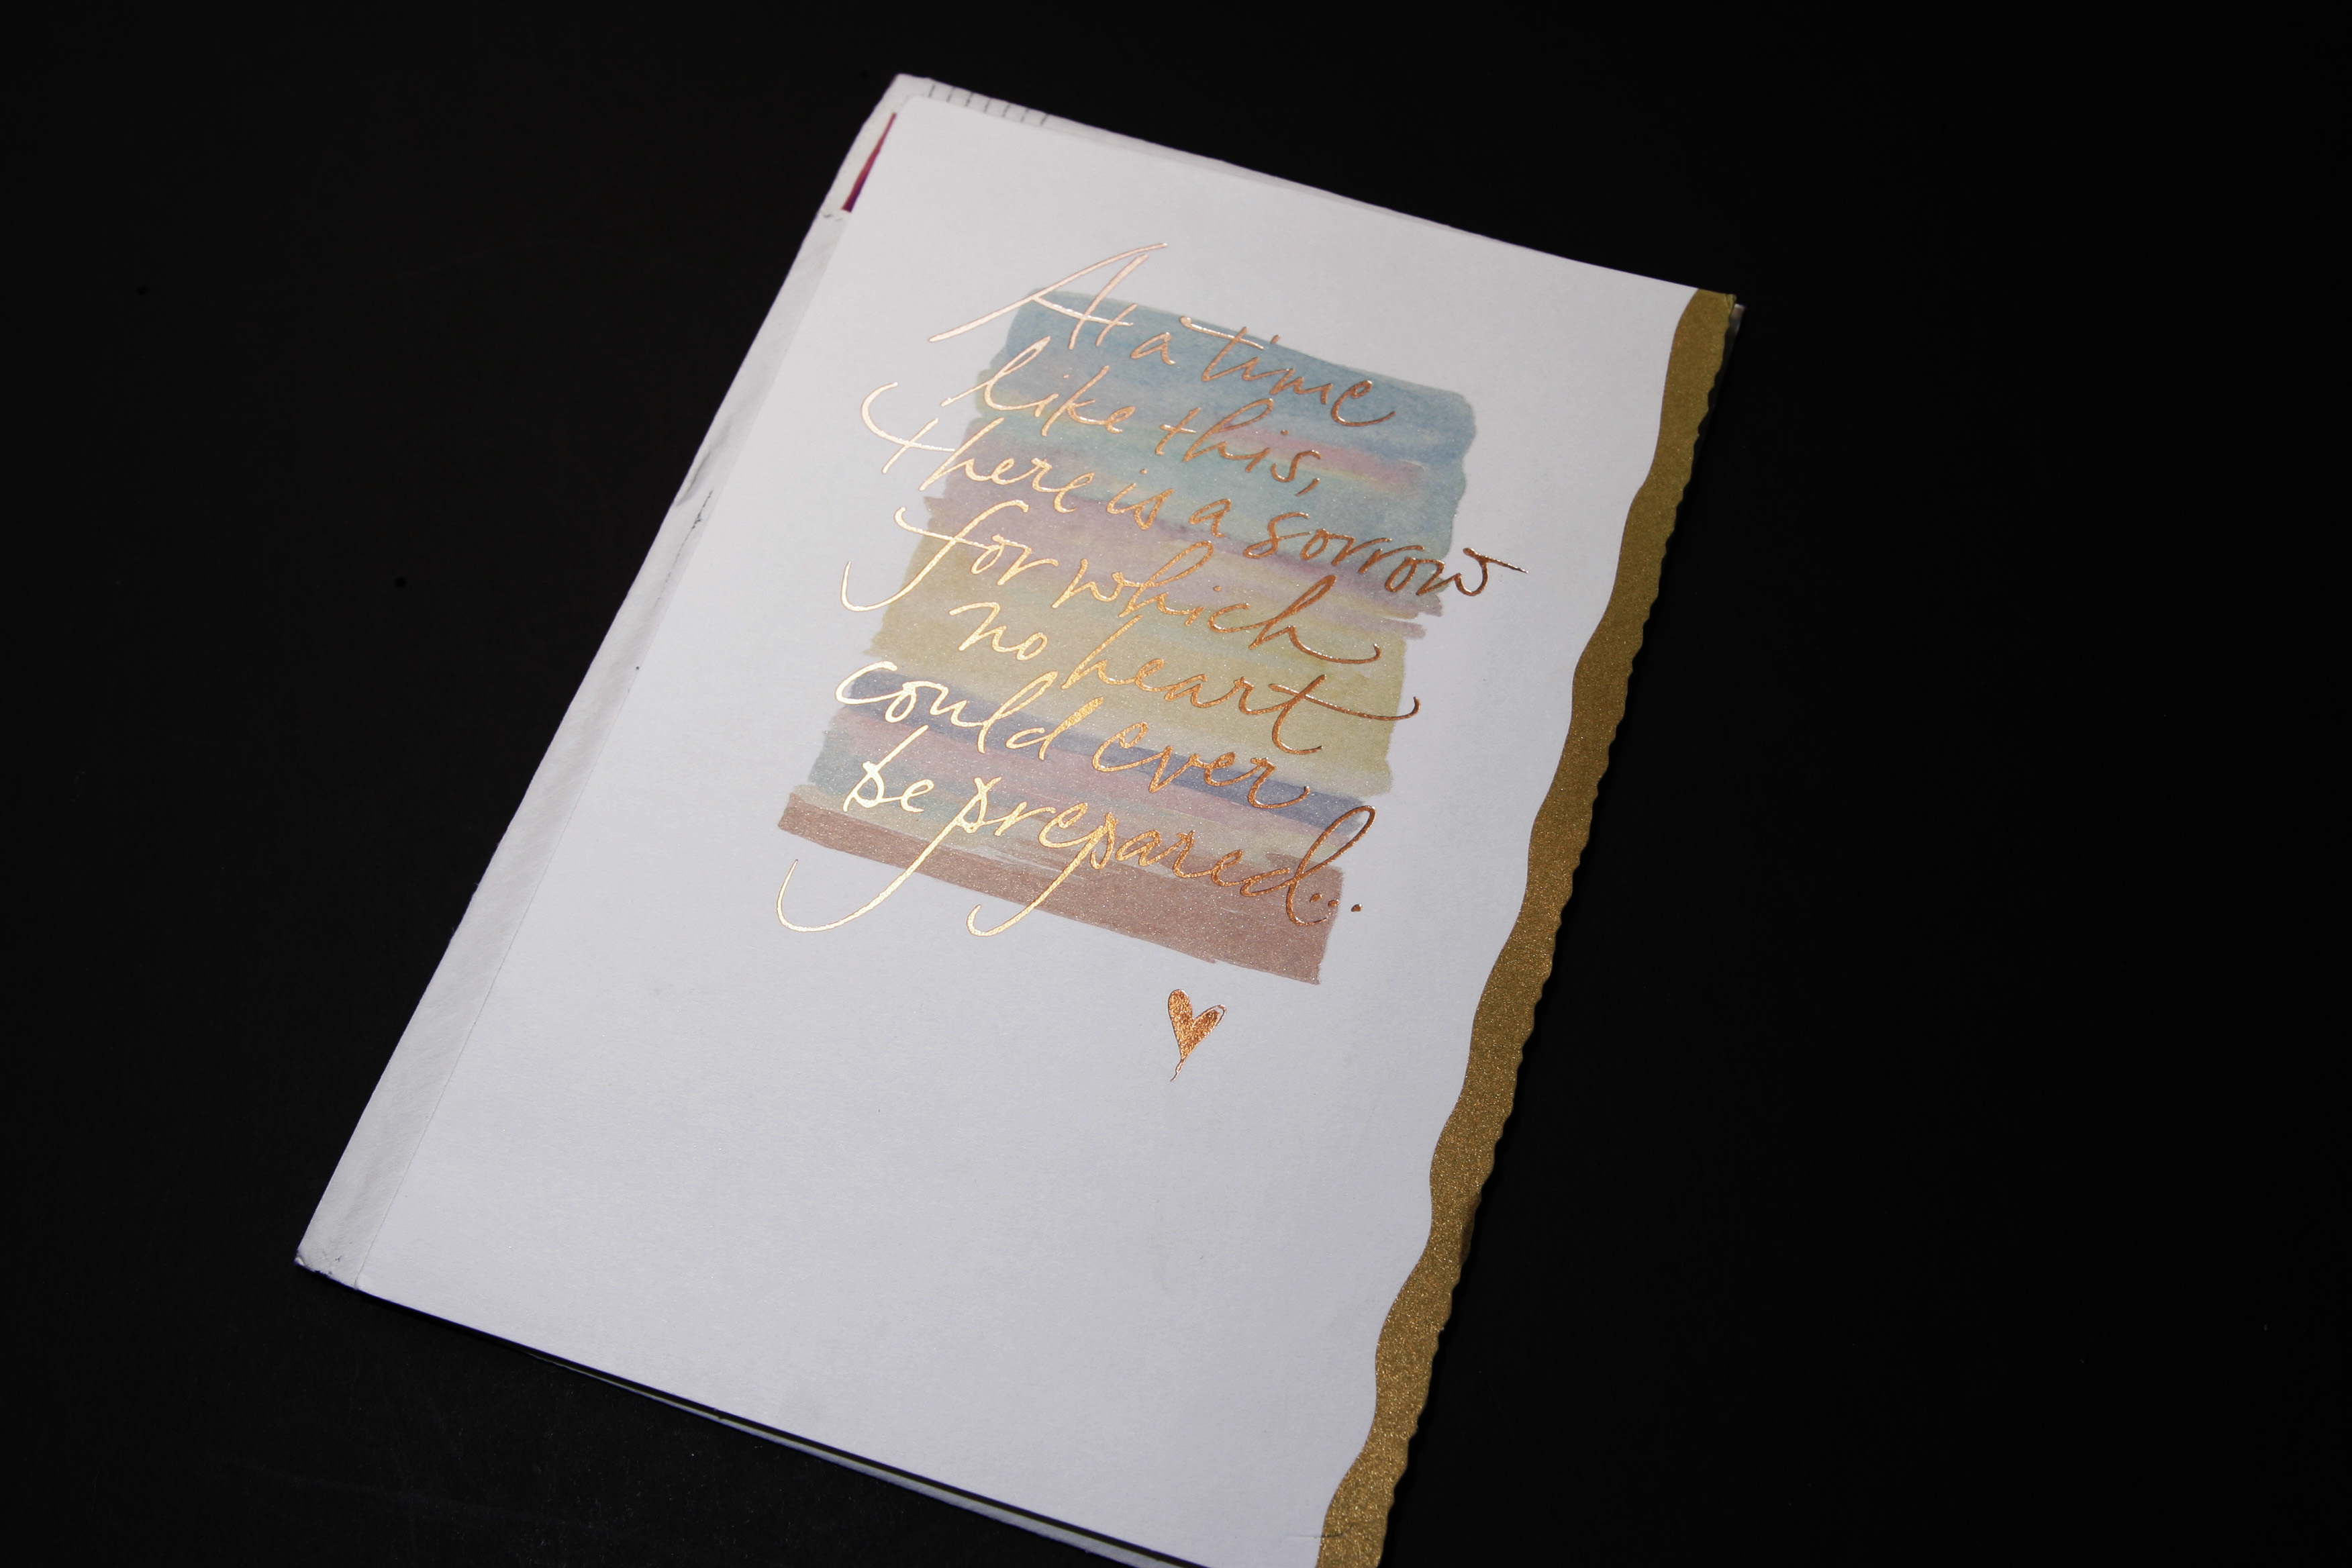 At a time
like this,
there is a sorrow
for which
no heart
could ever
be prepared...